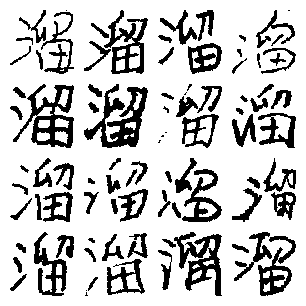 溜溜溜溜
溜溜溜溜
溜溜溜溜
溜溜溜溜